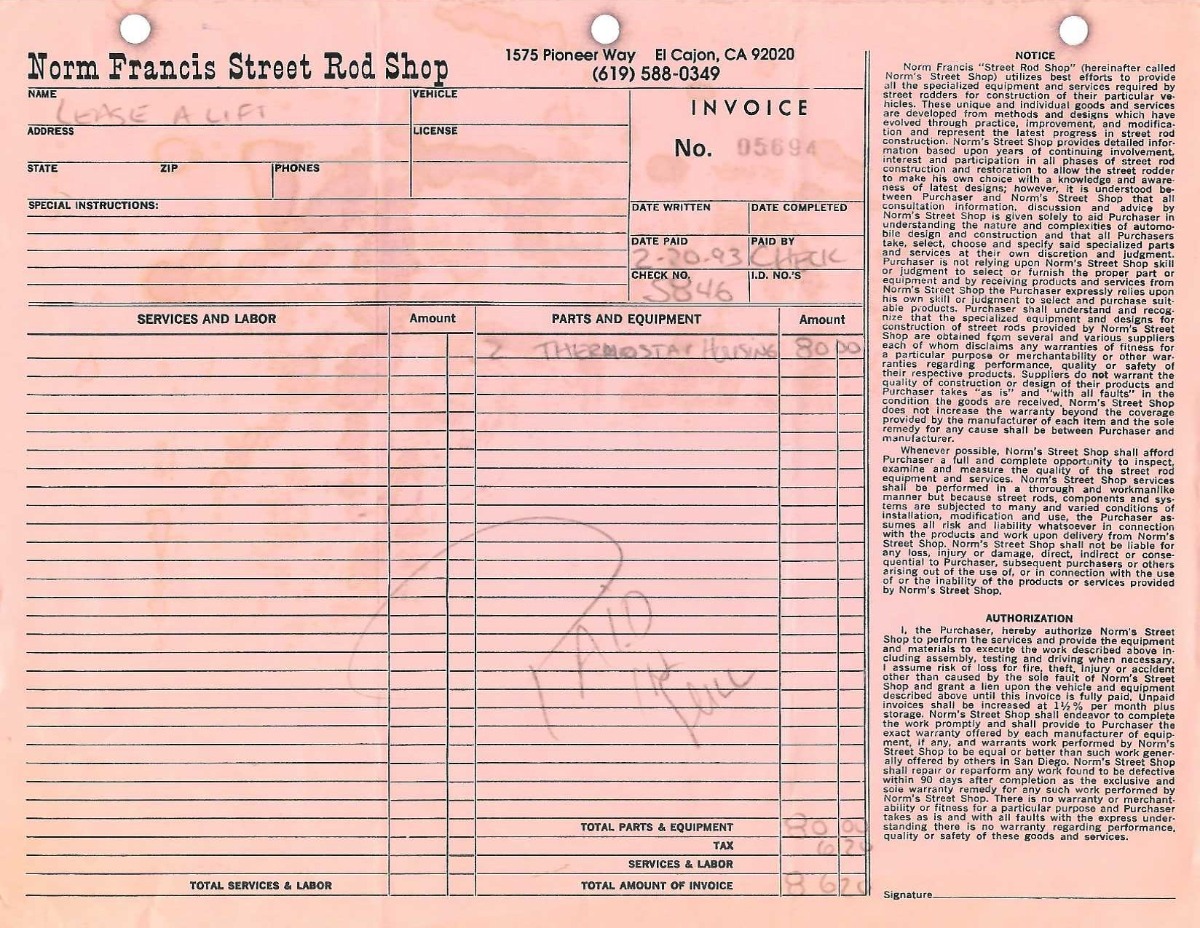 Norm Francis Street Rod Shop
1575 Pioneer Way El Cajon, CA 92020
(619) 588-0349
NAME
LEASE A LIFT
VEHICLE
ADDRESS
LICENSE
STATE ZIP PHONES
SPECIAL INSTRUCTIONS:
INVOICE
No. 05694
DATE WRITTEN DATE COMPLETED
DATE PAID PAID BY
2-20-93 CHECK
CHECK NO. I.D. NO.'S
5846
SERVICES AND LABOR Amount PARTS AND EQUIPMENT Amount
2 THERMOSTAT HOUSING 80 00
PAID
IN
FULL
TOTAL PARTS & EQUIPMENT 80 00
TAX 6 20
SERVICES & LABOR
TOTAL SERVICES & LABOR TOTAL AMOUNT OF INVOICE 86 20
NOTICE
Norm Francis "Street Rod Shop" (hereinafter called
Norm's Street Shop) utilizes best efforts to provide
all the specialized equipment and services required by
street rodders for construction of their particular ve-
hicles. These unique and individual goods and services
are developed from methods and designs which have
evolved through practice, improvement, and modifica-
tion and represent the latest progress in street rod
construction. Norm's Street Shop provides detailed infor-
mation based upon years of continuing involvement,
interest and participation in all phases of street rod
construction and restoration to allow the street rodder
to make his own choice with a knowledge and aware-
ness of latest designs; however, it is understood be-
tween Purchaser and Norm's Street Shop that all
consultation information, discussion and advice by
Norm's Street Shop is given solely to aid Purchaser in
understanding the nature and complexities of automo-
bile design and construction and that all Purchasers
take, select, choose and specify said specialized parts
and services at their own discretion and judgment.
Purchaser is not relying upon Norm's Street Shop skill
or judgment to select or furnish the proper part or
equipment and by receiving products and services from
Norm's Street Shop the Purchaser expressly relies upon
his own skill or judgment to select and purchase suit-
able products. Purchaser shall understand and recog-
nize that the specialized equipment and designs for
construction of street rods provided by Norm's Street
Shop are obtained from several and various suppliers
each of whom disclaims any warranties of fitness for
a particular purpose or merchantability or other war-
ranties regarding performance, quality or safety of
their respective products. Suppliers do not warrant the
quality of construction or design of their products and
Purchaser takes "as is" and "with all faults" in the
condition the goods are received. Norm's Street Shop
does not increase the warranty beyond the coverage
provided by the manufacturer of each item and the sole
remedy for any cause shall be between Purchaser and
manufacturer.
Whenever possible, Norm's Street Shop shall afford
Purchaser a full and complete opportunity to inspect,
examine and measure the quality of the street rod
equipment and services. Norm's Street Shop services
shall be performed in a thorough and workmanlike
manner but because street rods, components and sys-
tems are subjected to many and varied conditions of
installation, modification and use, the Purchaser as-
sumes all risk and liability whatsoever in connection
with the products and work upon delivery from Norm's
Street Shop. Norm's Street Shop shall not be liable for
any loss, injury or damage, direct, indirect or conse-
quential to Purchaser, subsequent purchasers or others
arising out of the use of, or in connection with the use
of or the inability of the products or services provided
by Norm's Street Shop.
AUTHORIZATION
I, the Purchaser, hereby authorize Norm's Street
Shop to perform the services and provide the equipment
and materials to execute the work described above in-
cluding assembly, testing and driving when necessary.
I assume risk of loss for fire, theft, injury or accident
other than caused by the sole fault of Norm's Street
Shop and grant a lien upon the vehicle and equipment
described above until this invoice is fully paid. Unpaid
invoices shall be increased at 1½% per month plus
storage. Norm's Street Shop shall endeavor to complete
the work promptly and shall provide to Purchaser the
exact warranty offered by each manufacturer of equip-
ment, if any, and warrants work performed by Norm's
Street Shop to be equal or better than such work gener-
ally offered by others in San Diego. Norm's Street Shop
shall repair or reperform any work found to be defective
within 90 days after completion as the exclusive and
sole warranty remedy for any such work performed by
Norm's Street Shop. There is no warranty or merchant-
ability or fitness for a particular purpose and Purchaser
takes as is and with all faults with the express under-
standing there is no warranty regarding performance,
quality or safety of these goods and services.
Signature